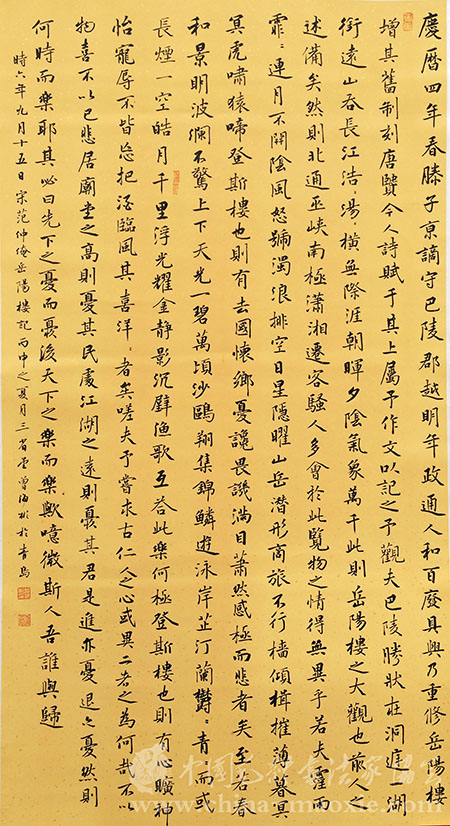 慶曆四年春滕子京謫守巴陵郡越明年政通人和百廢具興乃重修岳陽樓
增其舊制刻唐賢今人詩賦于其上屬予作文以記之予觀夫巴陵勝狀在洞庭一湖
銜遠山吞長江浩湯橫無際涯朝暉夕陰氣象萬千此則岳陽樓之大觀也前人之
述備矣然則北通巫峽南極瀟湘遷客騷人多會於此覽物之情得無異乎若夫霪雨
霏〻連月不開陰風怒號濁浪排空日星隱曜山岳潛形商旅不行檣傾楫摧薄暮冥
冥虎嘯猿啼登斯樓也則有去國懷鄉憂讒畏譏滿目蕭然感極而悲者矣至若春
和景明波瀾不驚上下天光一碧萬頃沙鷗翔集錦鱗遊泳岸芷汀蘭鬱〻青而或
長煙一空皓月千里浮光耀金靜影沉璧漁歌互答此樂何極登斯樓也則有心曠神
怡寵辱不皆忘把酒臨風其喜洋〻者矣嗟夫予嘗求古仁人之心或異二者之為何哉不以
物喜不以己悲居廟堂之高則憂其民處江湖之遠則憂其君是進亦憂退亦憂然則
何時而樂耶其必曰先下之憂而憂後天下之樂而樂歟噫微斯人吾誰與歸
時六年九月十五日宋范仲淹岳陽樓記丙申之夏月三省堂曾海於青島